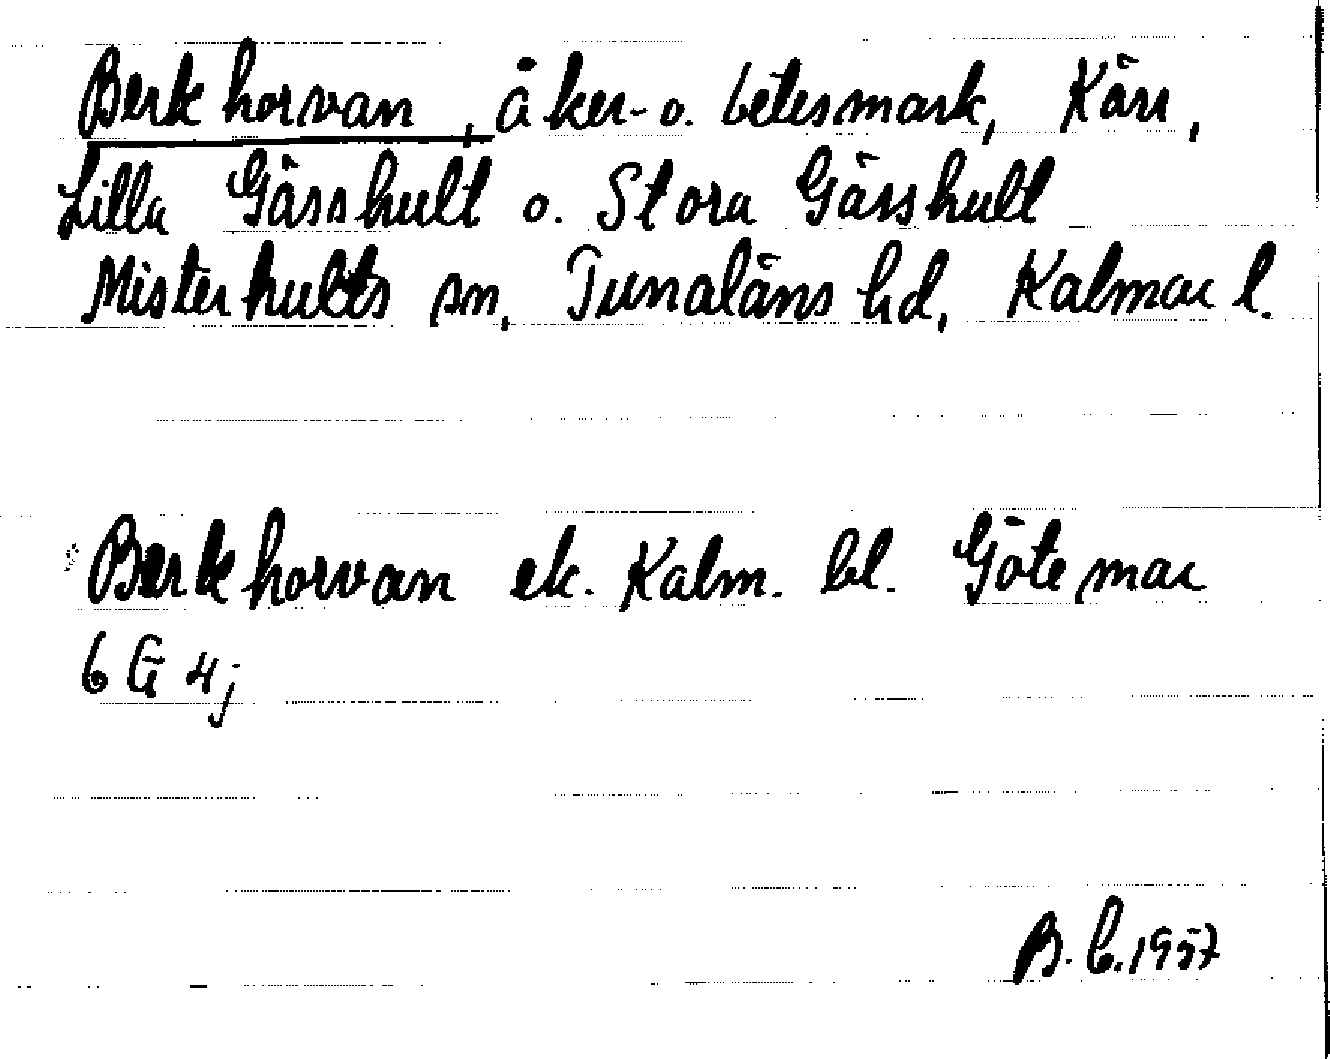 Berkhorvan, åker- o. betesmark, Kärr,
Lilla Gässhult o. Stora Gässhult
Misterhults sn, Tunaläns hd, Kalmar l.
Berkhorvan ek. Kalm. bl. Götemar
6 G 4j
B. C. 1957